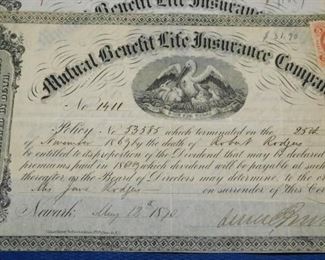 Benefit Life Insurance
$31.70
Mutual Benefit Life Insurance Compa
No 1411
Policy No 53585 which terminated on the 25th
of November 1869 by the death of Robert Rodgers
be entitled to its proportion of the Dividend that may be declared
premiums paid in 1869 which dividend will be payable at such
thereafter as the Board of Directors may determine, to the
Mrs Jane Rodgers on surrender of this Ce
Newark, May 12th 1870